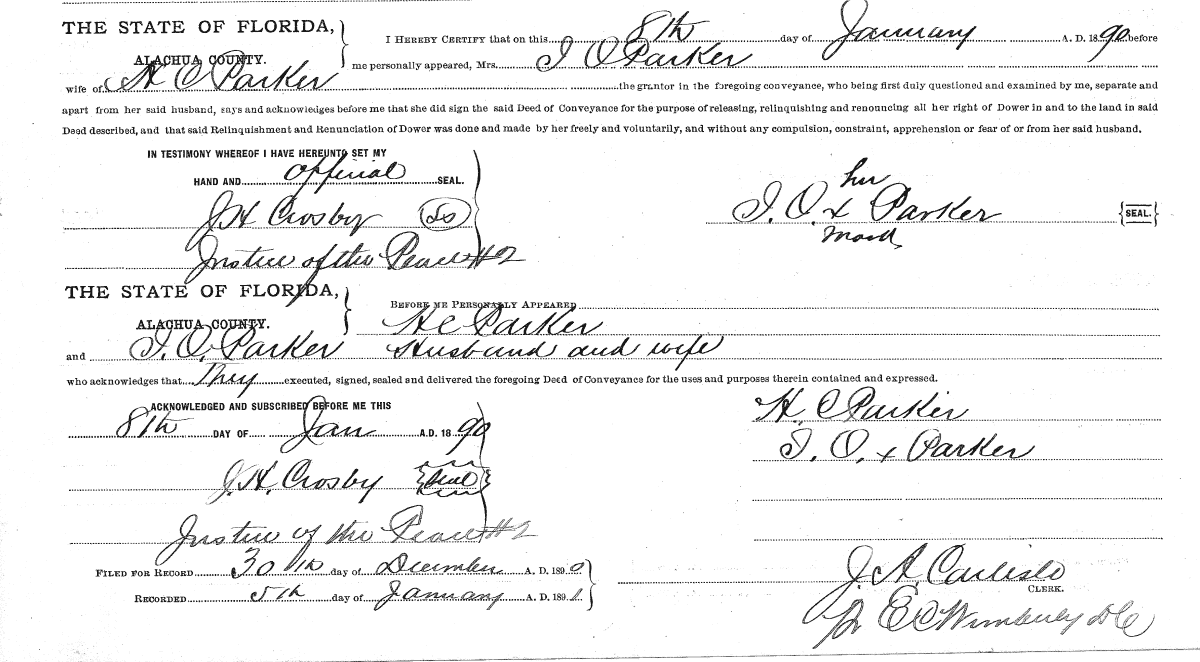 THE STATE OF FLORIDA,
ALACHUA COUNTY.
I HEREBY CERTIFY that on this 8th day of January A. D. 1890 before
me personally appeared, Mrs. I O Parker
wife of H C Parker the grantor in the foregoing conveyance, who being first duly questioned and examined by me, separate and
apart from her said husband, says and acknowledges before me that she did sign the said Deed of Conveyance for the purpose of releasing, relinquishing and renouncing all her right of Dower in and to the land in said
Deed described, and that said Relinquishment and Renunciation of Dower was done and made by her freely and voluntarily, and without any compulsion, constraint, apprehension or fear of or from her said husband.
IN TESTIMONY WHEREOF I HAVE HEREUNTO SET MY
HAND AND official SEAL.
J H Crosby
Justice of the Peace #2
her
I. O. x Parker {SEAL.}
mark
THE STATE OF FLORIDA,
ALACHUA COUNTY.
BEFORE ME PERSONALLY APPEARED
H C Parker
and I. O. Parker Husband and wife
who acknowledges that They executed, signed, sealed and delivered the foregoing Deed of Conveyance for the uses and purposes therein contained and expressed.
ACKNOWLEDGED AND SUBSCRIBED BEFORE ME THIS
8th DAY OF Jan A.D. 1890
J. H. Crosby {Seal}
Justice of the Peace #2
H. C Parker
I. O. x Parker
FILED FOR RECORD 30th day of December A. D. 1890
RECORDED 5th day of January A. D. 1891
J. A. Carlisle
CLERK.
E C Wimberly DC